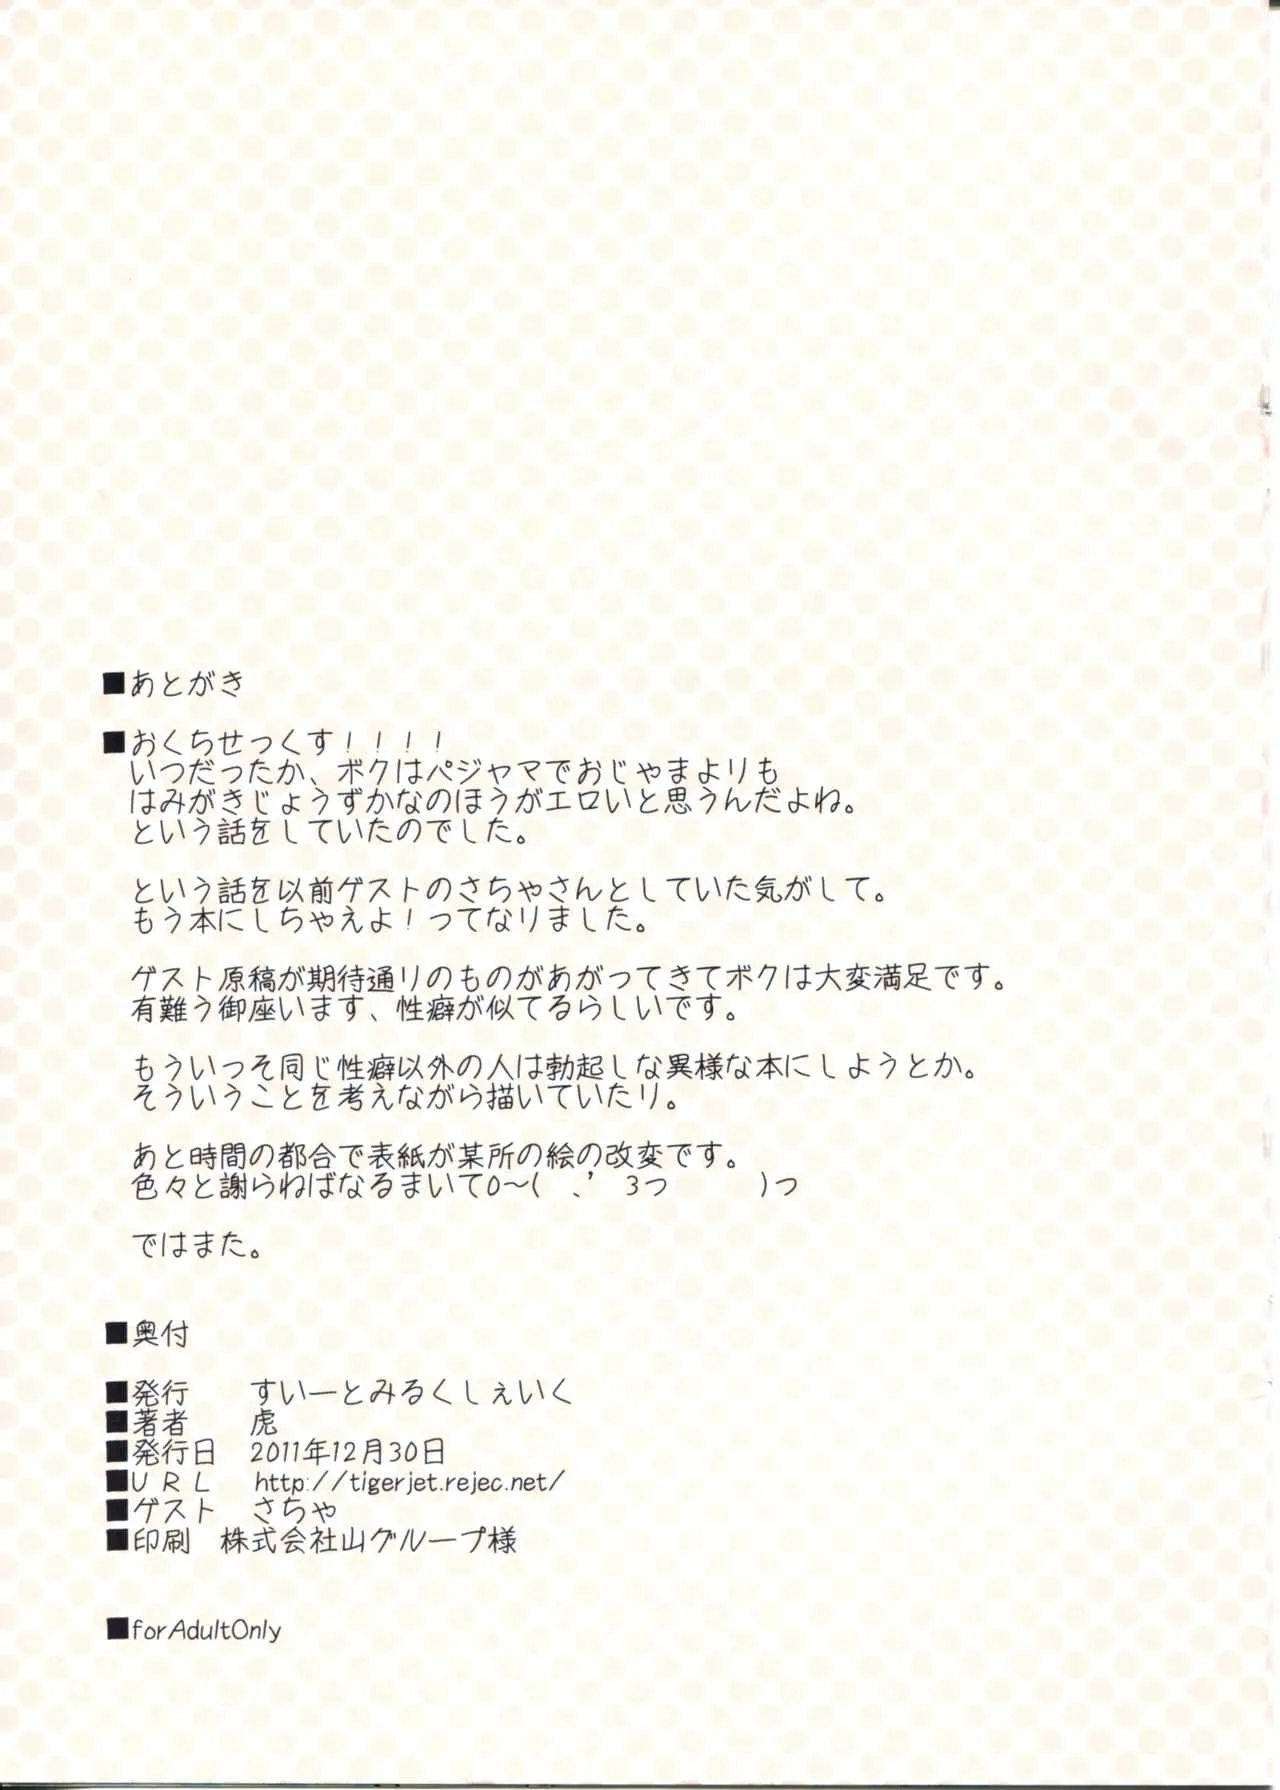 ■あとがき
■おくちせっくす!!!!
いつだったか、ボクはパジャマでおじゃまよりも
はみがきじょうずかなのほうがエロいと思うんだよね。
という話をしていたのでした。
という話を以前ゲストのさちゃさんとしていた気がして。
もう本にしちゃえよ!ってなりました。
ゲスト原稿が期待通りのものがあがってきてボクは大変満足です。
有難う御座います、性癖が似てるらしいです。
もういっそ同じ性癖以外の人は勃起しな異様な本にしようとか。
そういうことを考えながら描いていたり。
あと時間の都合で表紙が某所の絵の改変です。
色々と謝らねばなるまいて0~( 、' 3っ )っ
ではまた。
■奥付
■発行 すいーとみるくしぇいく
■著者 虎
■発行日 2011年12月30日
■URL http://tigerjet.rejec.net/
■ゲスト さちゃ
■印刷 株式会社山グループ様
■forAdultOnly